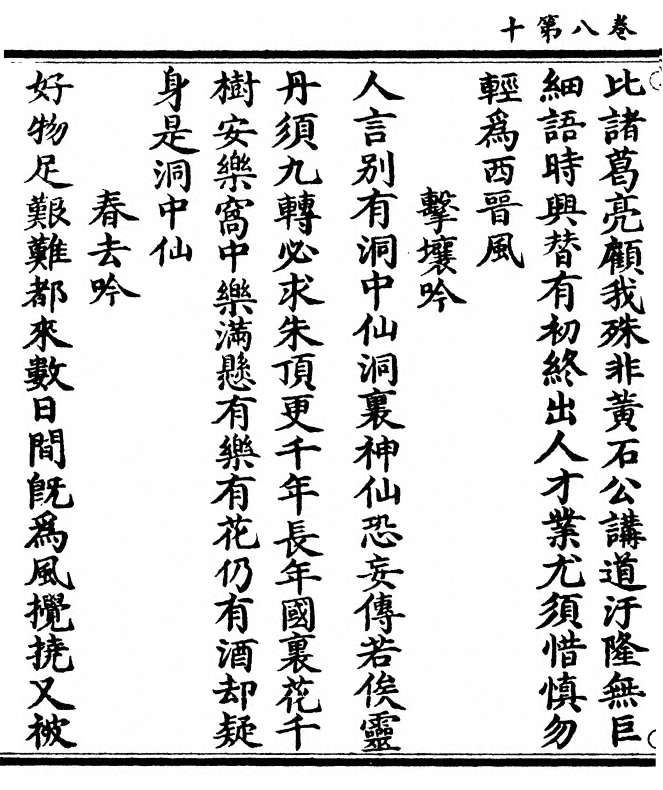 十第八卷
比諸葛亮顧我殊非黃石公講道汙隆無巨
細語時興替有初終出人才業尤須惜慎勿
輕爲西晉風
擊壤吟
人言別有洞中仙洞裏神仙恐妄傳若俟靈
丹須九轉必求朱頂更千年長年國裏花千
樹安樂窩中樂滿懸有樂有花仍有酒却疑
身是洞中仙
春去吟
好物足艱難都來數日間旣爲風攪撓又被